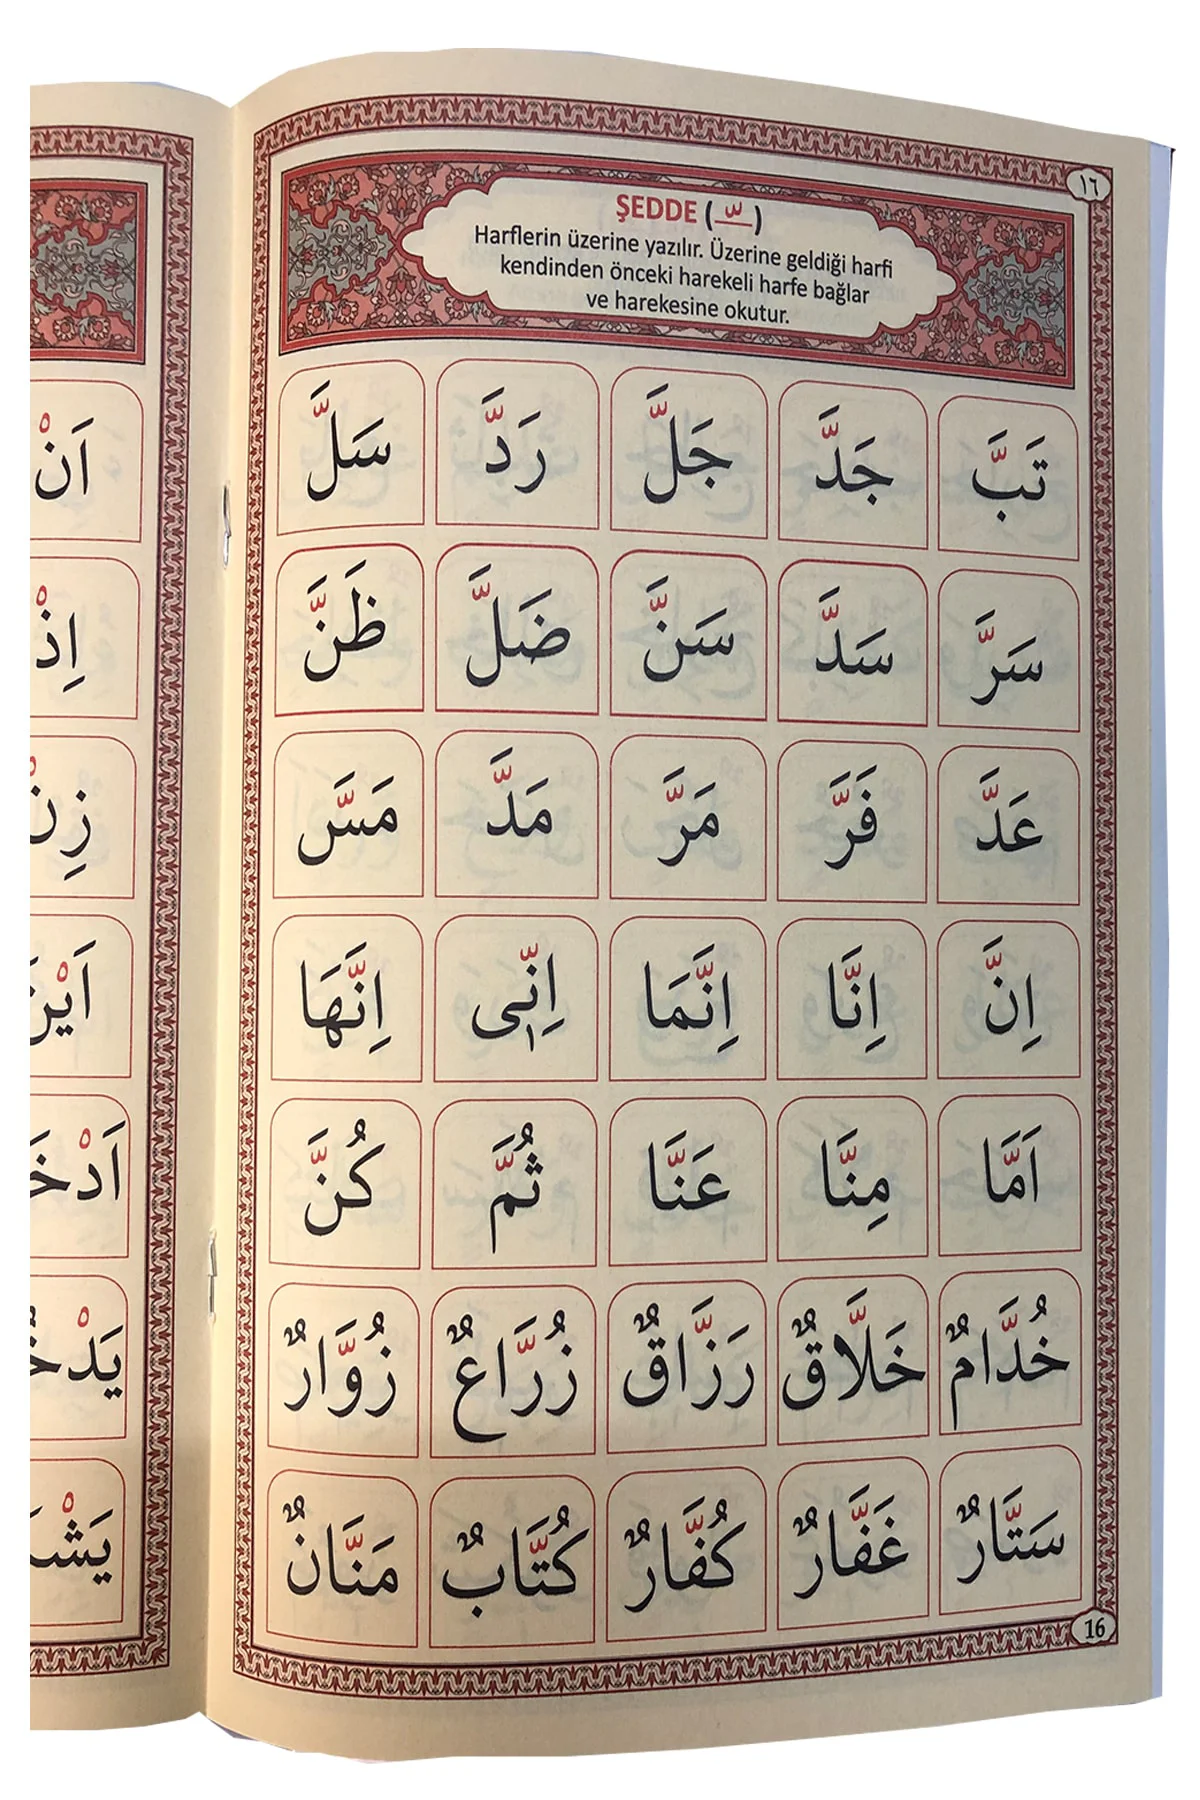 ١٦
ŞEDDE (ــّـ)
Harflerin üzerine yazılır. Üzerine geldiği harfi
kendinden önceki harekeli harfe bağlar
ve harekesine okutur.
تَبَّ جَدَّ جَلَّ رَدَّ سَلَّ
سَرَّ سَدَّ سَنَّ ضَلَّ ظَنَّ
عَدَّ فَرَّ مَرَّ مَدَّ مَسَّ
اِنَّ اِنَّا اِنَّمَا اِنّٖى اِنَّهَا
اَمَّا مِنَّا عَنَّا ثُمَّ كُنَّ
خُدَّامٌ خَلَّاقٌ رَزَّاقٌ زُرَّاعٌ زُوَّارٌ
سَتَّارٌ غَفَّارٌ كُفَّارٌ كُتَّابٌ مَنَّانٌ
16
اَنْ
اِذْ
زِنْ